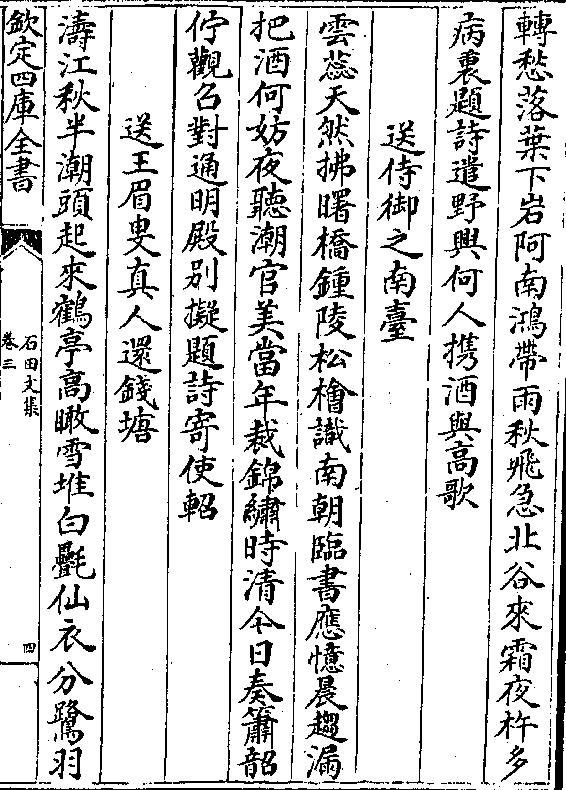 轉愁落葉下岩阿南鴻帶雨秋飛急北谷來霜夜杵多
病裏題詩遣野興何人携酒與高歌
送侍御之南臺
雲蕊天然拂曙橋鍾陵松檜識南朝臨書應憶晨趨漏
把酒何妨夜聽潮官美當年裁錦繡時清今日奏簫韶
佇觀召對通明殿别擬題詩寄使軺
送王眉叟真人還錢塘
濤江秋半潮頭起來鶴亭高瞰雪堆白㲲仙衣分鷺羽
欽定四庫全書
石田文集
卷三
四